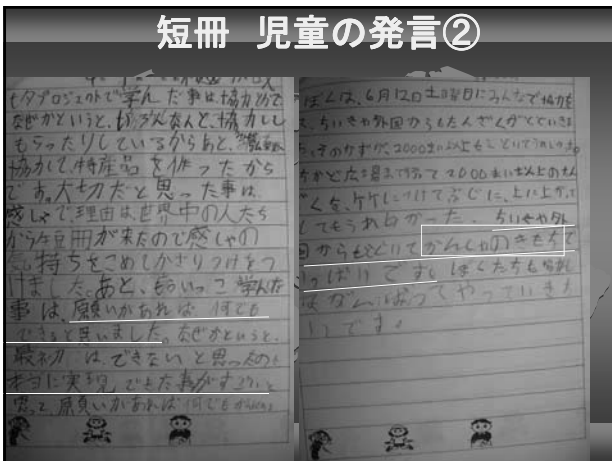 短冊 児童の発言②
七夕プロジェクトで学んだ事は、協力とかで、
なぜかというと、いろんな人と、協力し
もらったりしているからあと、
協力して、特産品を作ったから
です。大切だと思った事は
感しゃで理由は世界中の人たち
から短冊が来たので感しゃの
気持ちをこめてかざりつけをつ
けました。あと、もういっこ学んだ
事は、願いがあれば何でも
できると思いました。なぜかというと、
最初は、できないと思ったのに
本当に実現できた事がすごいと
思って、願いがあれば何でも
ぼくは、6月12日土曜日にみんなで協力を
ちいきや外国からもたんざくが
2000まい以上も
2000まい以上のたん
ざくを、竹につけてぶじに、上に上がって
とてもうれしかった。ちいきや外
国からもとどいてかんしゃのきもちで
いっぱいです。ぼくたちも
がんばってやっていきた
いです。